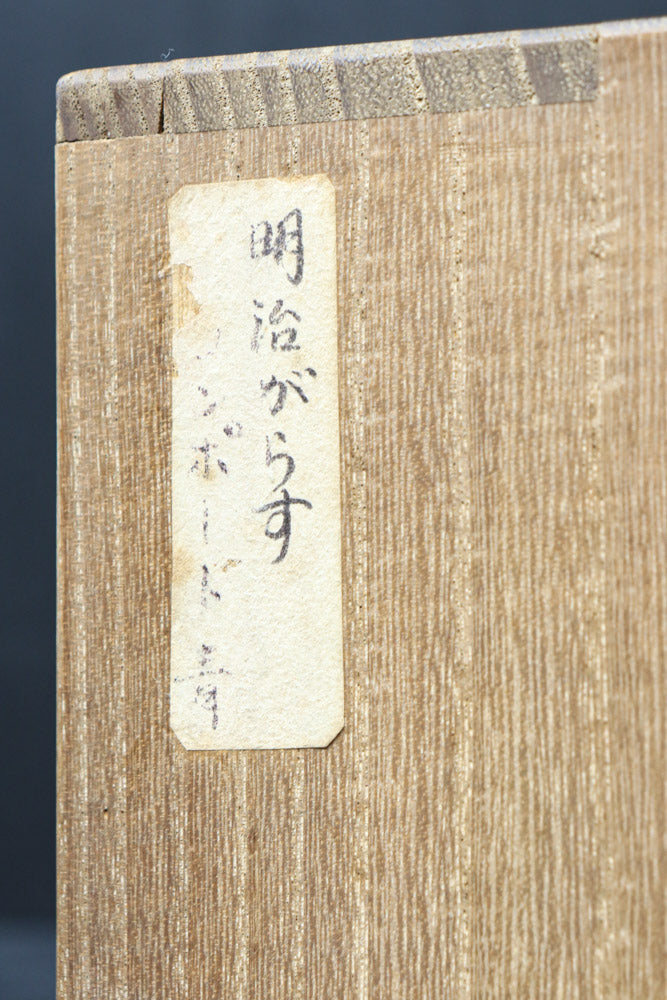 明治がらす
コンポート 壹